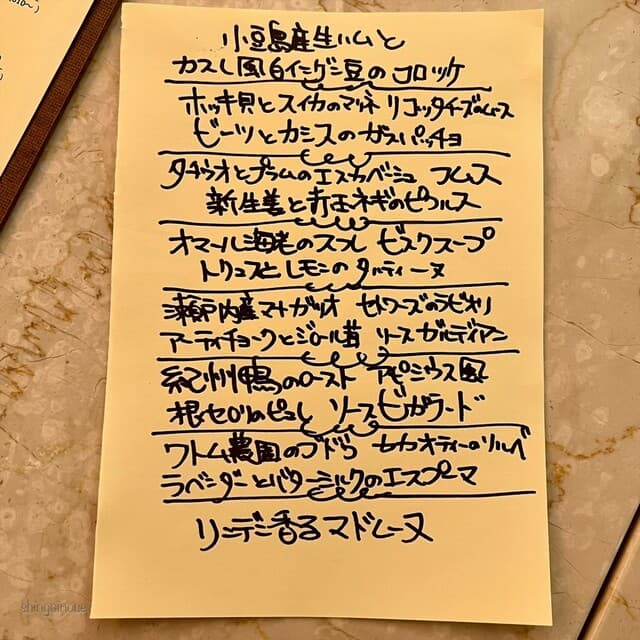 小豆島産生ハムと
カスレ風白インゲン豆の コロッケ
ホッキ貝とスイカのマリネ リコッタチーズのムース
ビーツとカシスのガスパッチョ
タチウオとプラムのエスカベーシュ フムス
新生姜と赤玉ネギのピクルス
オマール海老のスフレ ビスクスープ
トリュフとレモンのタルティーヌ
瀬戸内産マナガツオ セトワーズのラビオリ
アーティチョークとジロール茸 ソース ガルディアン
紀州鴨のロースト アピシウス風
根セロリのピュレ ソース ビガラード
ワトム農園のブドウ セカオティーのソルベ
ラベンダーとバターミルクのエスプーマ
リンデン香るマドレーヌ
shingoinoue